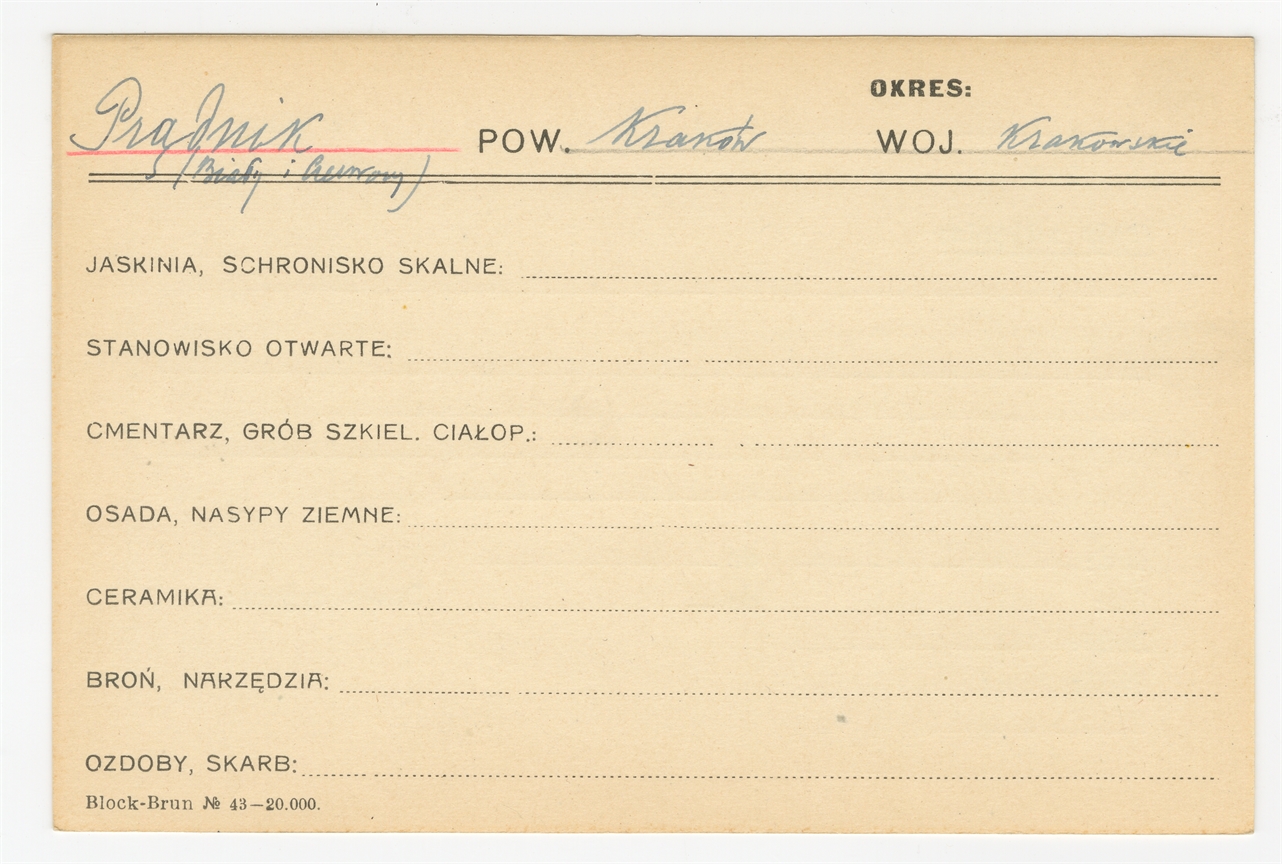 OKRES:
Prądnik POW. Kraków WOJ. Krakowskie
(Biały i Czerwony)
JASKINIA, SCHRONISKO SKALNE:
STANOWISKO OTWARTE:
CMENTARZ, GRÓB SZKIEL. CIAŁOP.:
OSADA, NASYPY ZIEMNE:
CERAMIKA:
BROŃ, NARZĘDZIA:
OZDOBY, SKARB:
Block-Brun № 43—20.000.